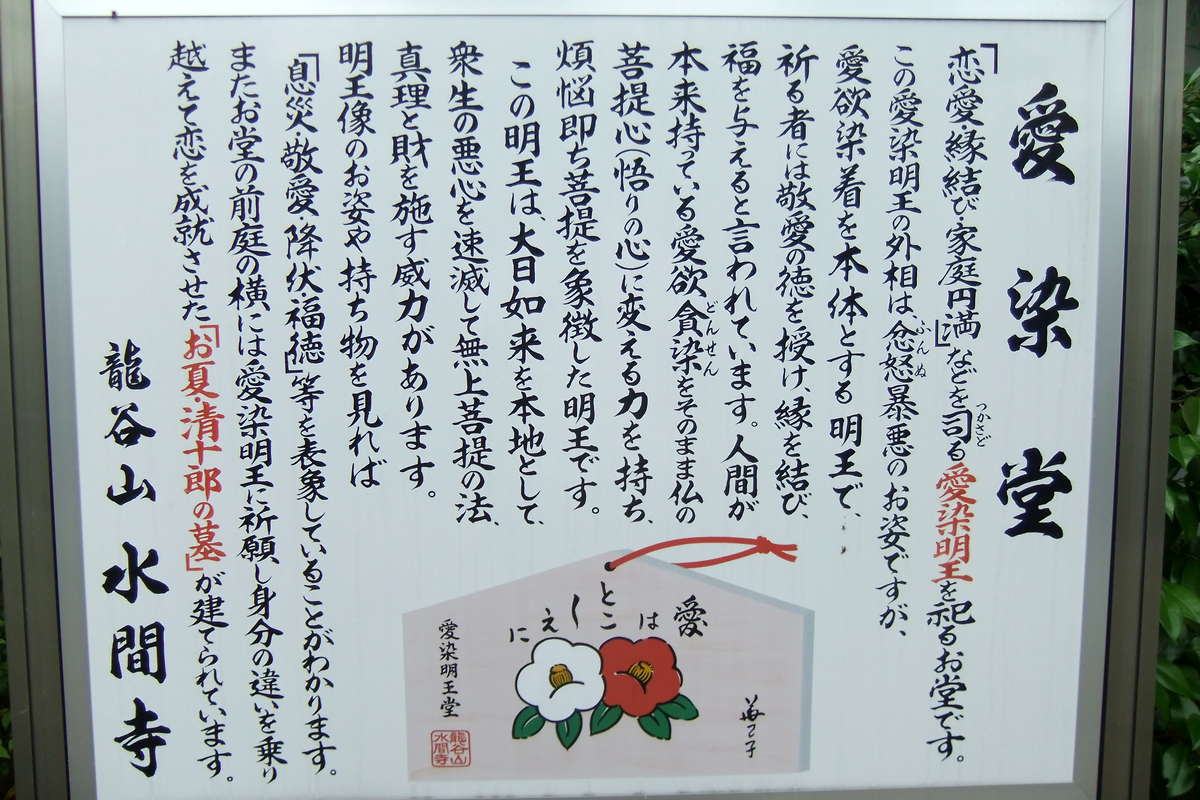 愛染堂
「恋愛・縁結び・家庭円満」などを司る愛染明王を祀るお堂です。
つかさど
この愛染明王の外相は、忿怒暴悪のお姿ですが、
ふんぬ
愛欲染着を本体とする明王で、
祈る者には敬愛の徳を授け、縁を結び、
福を与えると言われています。人間が
本来持っている愛欲貪染をそのまま仏の
どんせん
菩提心(悟りの心)に変える力を持ち、
煩悩即ち菩提を象徴した明王です。
この明王は、大日如来を本地として、
衆生の悪心を速滅して無上菩提の法、
真理と財を施す威力があります。
明王像のお姿や持ち物を見れば
「息災・敬愛・降伏・福徳」等を表象していることがわかります。
またお堂の前庭の横には愛染明王に祈願し身分の違いを乗り
越えて恋を成就させた「お夏・清十郎の墓」が建てられています。
龍谷山水間寺
愛は
とこしえに
愛染明王堂
龍谷山
水間寺